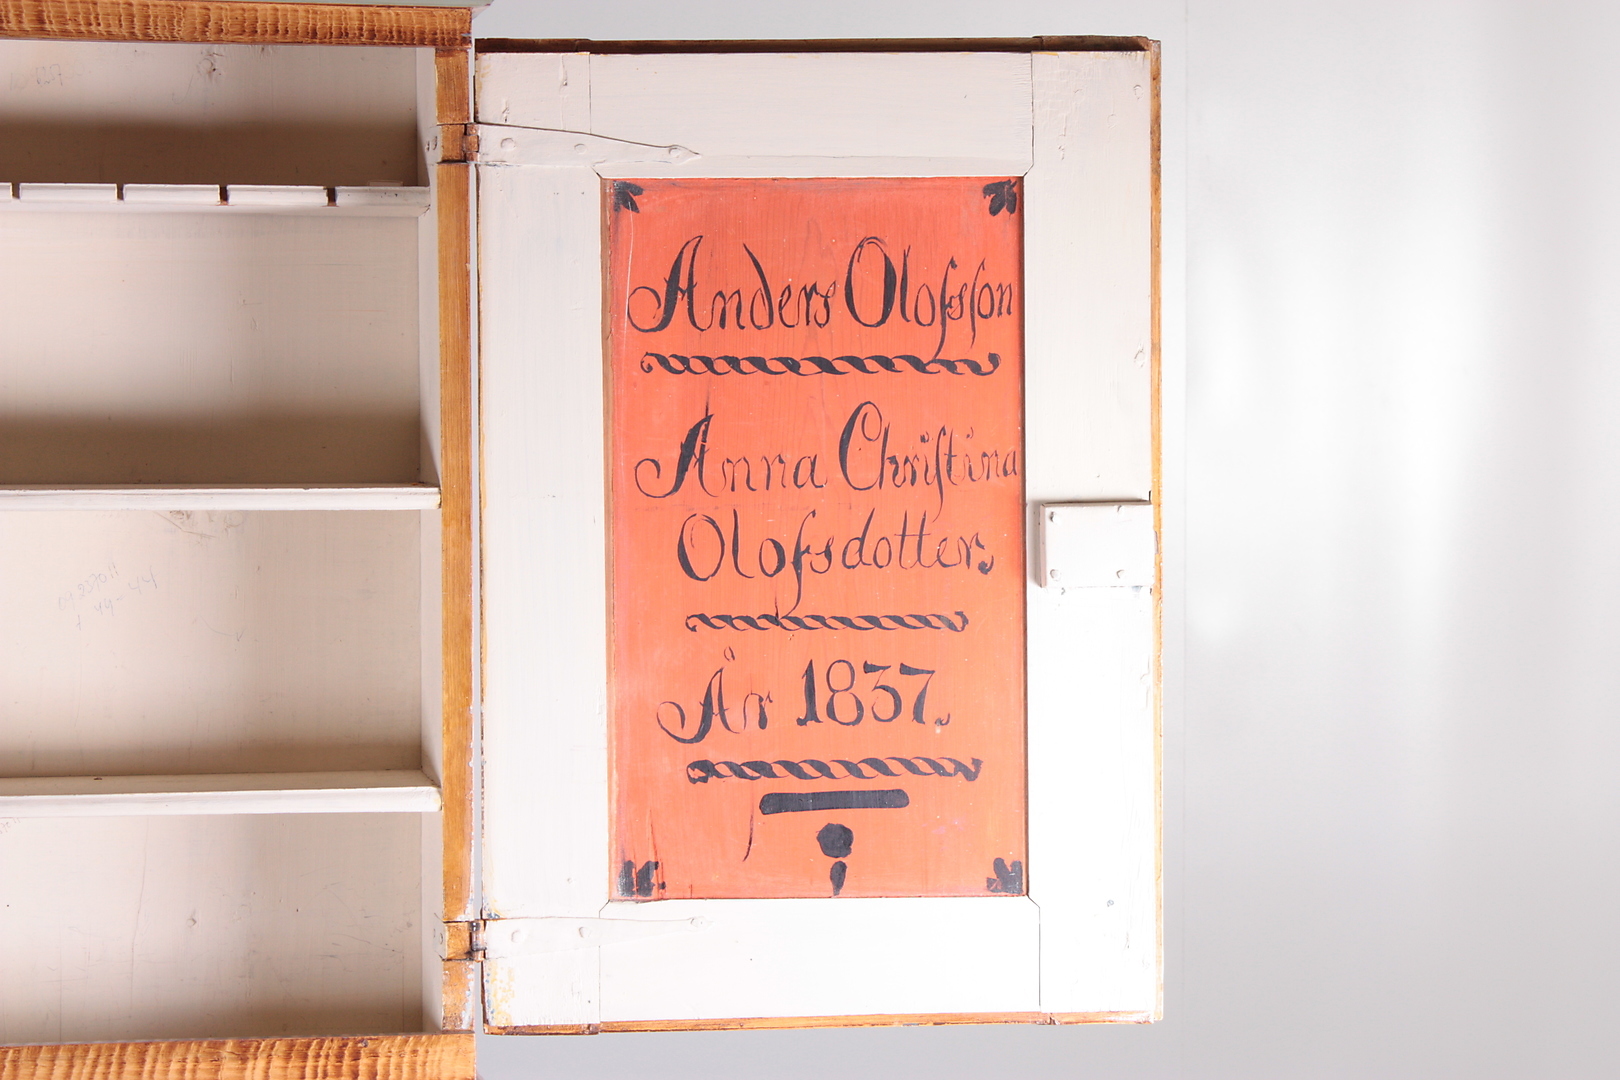 Anders Olofsson
Anna Christina
Olofsdotter.
År 1837.